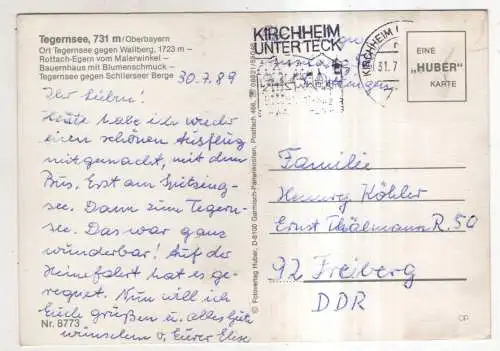 Tegernsee, 731 m/Oberbayern
Ort Tegernsee gegen Wallberg, 1723 m –
Rottach-Egern vom Maierwinkel –
Bauernhaus mit Blumenschmuck –
Tegernsee gegen Schlierseer Berge
30.7.89
Ihr Lieben!
Heute habe ich wieder
einen schönen Ausflug
mitgemacht, mit dem
Bus. Erst am Spitzing-
see. Dann zum Tegern-
see. Das war ganz
wunderbar! Auf der
Heimfahrt hat es ge-
regnet. Nun will ich
Euch grüßen u. alles Gute
wünschen v. Eurer Else
Nr. 8773
© Fotoverlag Huber, D-8100 Garmisch-Partenkirchen, Postfach 466,
KIRCHHEIM
UNTER TECK
KIRCHHEIM
31.7
7
EINE
„HUBER“
KARTE
Familie
Henny Köhler
Ernst Thälmann R. 50
92 Freiberg
DDR